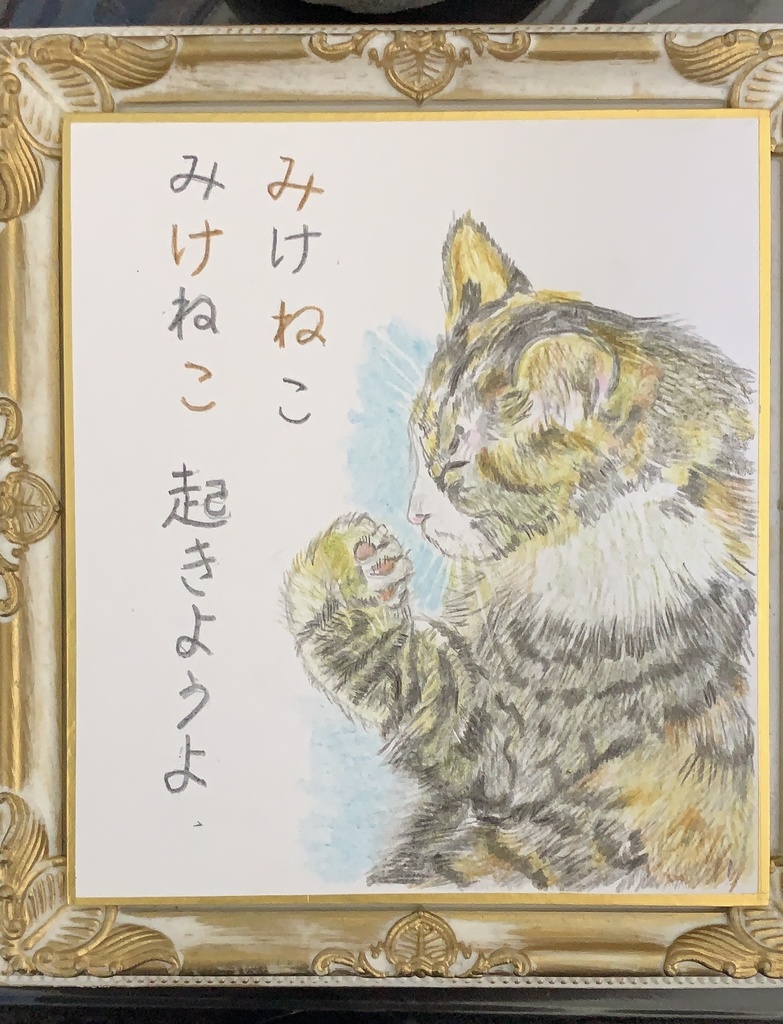 みけねこ
みけねこ 起きようよ